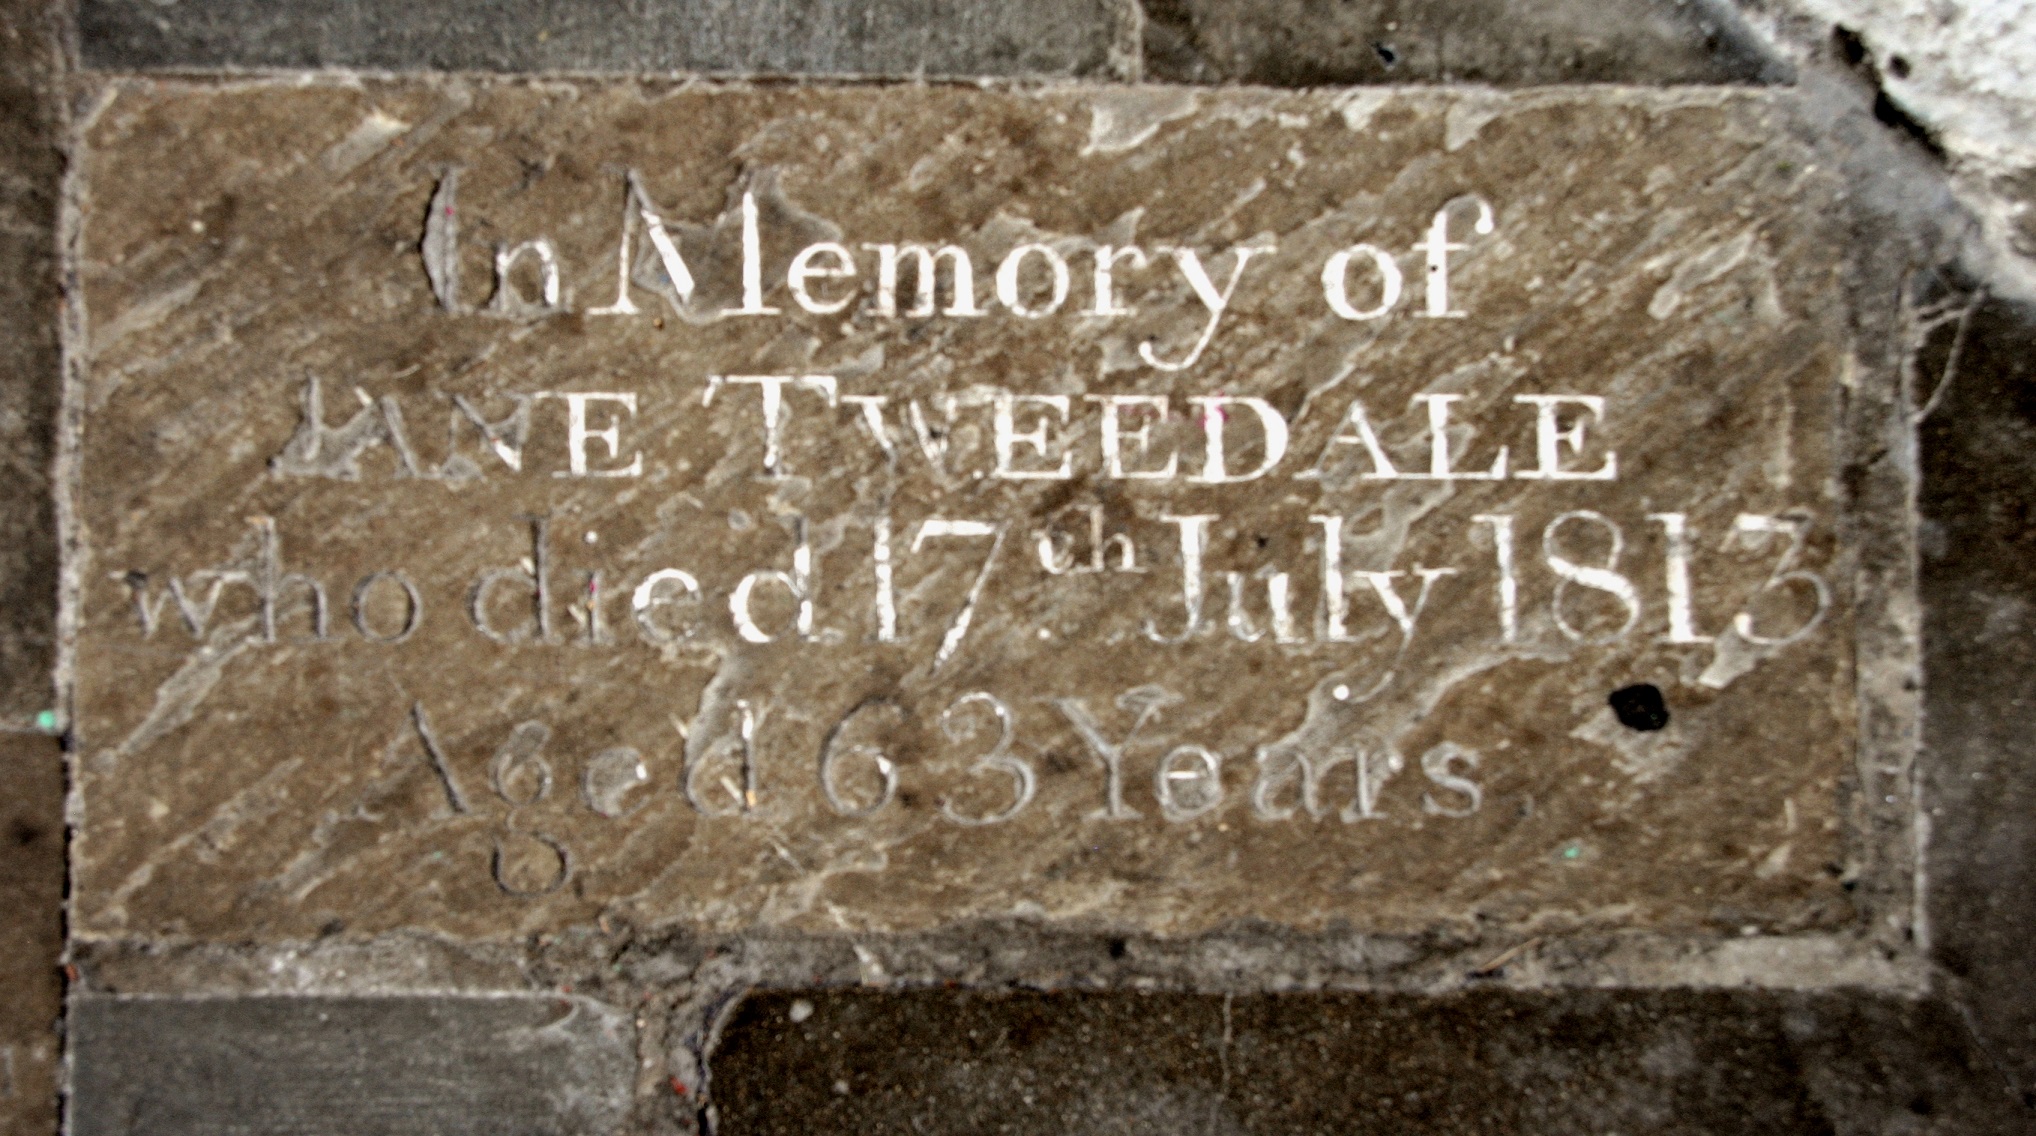 In Memory of
JANE TWEEDALE
who died 17th July 1813
Aged 63 Years